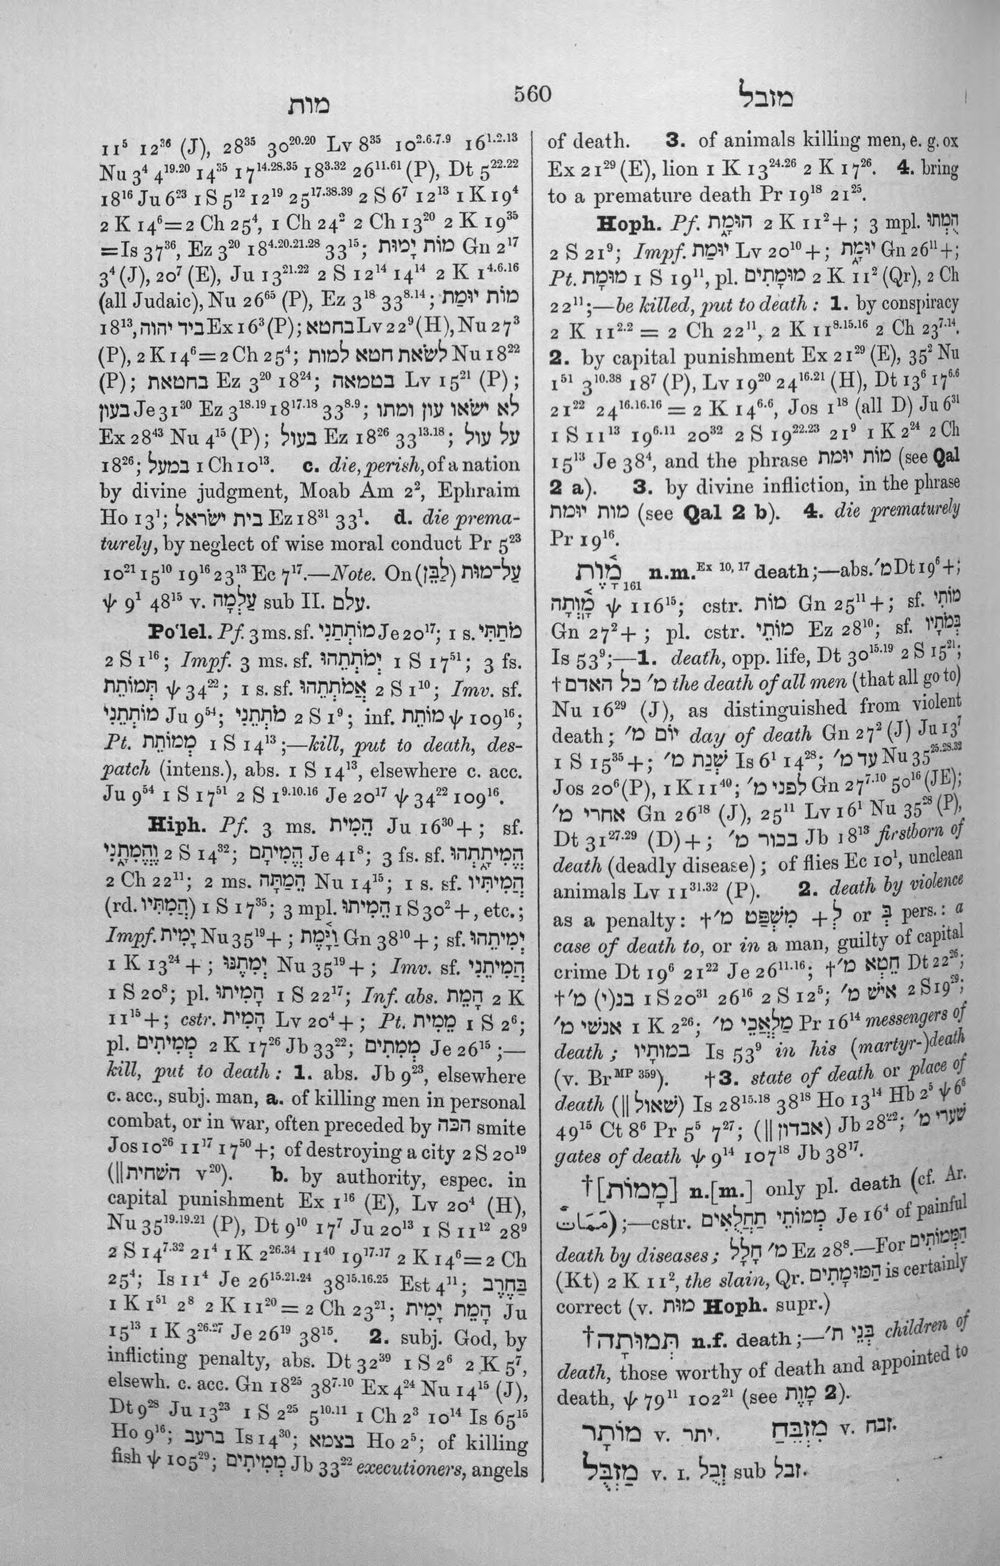 מות
560
מזבל
11⁵ 12³⁶ (J), 28³⁵ 30²⁰·²⁰ Lv 8³⁵ 10²·⁶·⁷·⁹ 16¹·²·¹³
Nu 3⁴ 4¹⁹·²⁰ 14³⁵ 17¹⁴·²⁸·³⁵ 18³·³² 26¹¹·⁶¹ (P), Dt 5²²·²²
18¹⁶ Ju 6²³ 1 S 5¹² 12¹⁹ 25¹⁷·³⁸·³⁹ 2 S 6⁷ 12¹³ 1 K 19⁴
2 K 14⁶=2 Ch 25⁴, 1 Ch 24² 2 Ch 13²⁰ 2 K 19³⁵
=Is 37³⁶, Ez 3²⁰ 18⁴·²⁰·²¹·²⁸ 33¹⁵; מוֹת יָמוּת Gn 2¹⁷
3⁴ (J), 20⁷ (E), Ju 13²¹·²² 2 S 12¹⁴ 14¹⁴ 2 K 1⁴·⁶·¹⁶
(all Judaic), Nu 26⁶⁵ (P), Ez 3¹⁸ 33⁸·¹⁴; מוֹת יוּמַת
18¹³, ביד יהוה Ex 16³ (P); בחטא Lv 22⁹ (H), Nu 27³
(P), 2 K 14⁶=2 Ch 25⁴; לשׂאת חטא למות Nu 18²²
(P); בחטאת Ez 3²⁰ 18²⁴; בטמאה Lv 15³¹ (P);
בעון Je 31³⁰ Ez 3¹⁸·¹⁹ 18¹⁷·¹⁸ 33⁸·⁹; לא ישׂאו עון ומתו
Ex 28⁴³ Nu 4¹⁵ (P); בעול Ez 18²⁶ 33¹³·¹⁸; על עול
18²⁶; במעל 1 Ch 10¹³. c. die, perish, of a nation
by divine judgment, Moab Am 2², Ephraim
Ho 13¹; בית ישׂראל Ez 18³¹ 33¹. d. die prema-
turely, by neglect of wise moral conduct Pr 5²³
10²¹ 15¹⁰ 19¹⁶ 23¹³ Ec 7¹⁷.—Note. On (לבן) על־מות
ψ 9¹ 48¹⁵ v. עַלְמָה sub II. עלם.
Po‘lel. Pf. 3 ms. sf. מוֹתְתַנִי Je 20¹⁷; 1 s. מֹתַתִּי
2 S 1¹⁶; Impf. 3 ms. sf. יְמֹתְתֵהוּ 1 S 17⁵¹; 3 fs.
תְּמוֹתֵת ψ 34²²; 1 s. sf. אֲמֹתְתֵהוּ 2 S 1¹⁰; Imv. sf.
מוֹתְתֵנִי Ju 9⁵⁴; מֹתְתֵנִי 2 S 1⁹; inf. מוֹתֵת ψ 109¹⁶;
Pt. מְמוֹתֵת 1 S 14¹³;—kill, put to death, des-
patch (intens.), abs. 1 S 14¹³, elsewhere c. acc.
Ju 9⁵⁴ 1 S 17⁵¹ 2 S 1⁹·¹⁰·¹⁶ Je 20¹⁷ ψ 34²² 109¹⁶.
Hiph. Pf. 3 ms. הֵמִית Ju 16³⁰+; sf.
וֶהֱמִתַנִי 2 S 14³²; הֱמִיתָם Je 41⁸; 3 fs. sf. הֱמִיתַתְהוּ
2 Ch 22¹¹; 2 ms. הֵמַתָּה Nu 14¹⁵; 1 s. sf. הֲמִיתִּיו
(rd. הֲמִתִּיו) 1 S 17³⁵; 3 mpl. הֵמִיתוּ 1 S 30²+, etc.;
Impf. יָמִית Nu 35¹⁹+; וַיָּמֶת Gn 38¹⁰+; sf. יְמִיתֵהוּ
1 K 13²⁴+; יְמִתֶנּוּ Nu 35¹⁹+; Imv. sf. הֲמִיתֵנִי
1 S 20⁸; pl. הָמִיתוּ 1 S 22¹⁷; Inf. abs. הָמֵת 2 K
11¹⁵+; cstr. הָמִית Lv 20⁴+; Pt. מֵמִית 1 S 2⁶;
pl. מְמִיתִים 2 K 17²⁶ Jb 33²²; מְמִתִים Je 26¹⁵;—
kill, put to death: 1. abs. Jb 9²³, elsewhere
c. acc., subj. man, a. of killing men in personal
combat, or in war, often preceded by הכה smite
Jos 10²⁶ 11¹⁷ 17⁵⁰+; of destroying a city 2 S 20¹⁹
(‖השׁחית v²⁰). b. by authority, espec. in
capital punishment Ex 1¹⁶ (E), Lv 20⁴ (H),
Nu 35¹⁹·¹⁹·²¹ (P), Dt 9¹⁰ 17⁷ Ju 20¹³ 1 S 11¹² 28⁹
2 S 14⁷·³² 21⁴ 1 K 2²⁶·³⁴ 11⁴⁰ 19¹⁷·¹⁷ 2 K 14⁶=2 Ch
25⁴; Is 11⁴ Je 26¹⁵·²¹·²⁴ 38¹⁵·¹⁶·²⁵ Est 4¹¹; בחרב
1 K 1⁵¹ 2⁸ 2 K 11²⁰=2 Ch 23²¹; הָמֵת יָמִית Ju
15¹³ 1 K 3²⁶·²⁷ Je 26¹⁹ 38¹⁵. 2. subj. God, by
inflicting penalty, abs. Dt 32³⁹ 1 S 2⁶ 2 K 5⁷,
elsewh. c. acc. Gn 18²⁵ 38⁷·¹⁰ Ex 4²⁴ Nu 14¹⁵ (J),
Dt 9²⁸ Ju 13²³ 1 S 2²⁵ 5¹⁰·¹¹ 1 Ch 2³ 10¹⁴ Is 65¹⁵
Ho 9¹⁶; ברעב Is 14³⁰; בצמא Ho 2⁵; of killing
fish ψ 105²⁹; מְמִיתִים Jb 33²² executioners, angels
of death. 3. of animals killing men, e. g. ox
Ex 21²⁹ (E), lion 1 K 13²⁴·²⁶ 2 K 17²⁶. 4. bring
to a premature death Pr 19¹⁸ 21²⁵.
Hoph. Pf. הוּמַת 2 K 11²+; 3 mpl. הֻמְתוּ
2 S 21⁹; Impf. יוּמַת Lv 20¹⁰+; יוּמָת Gn 26¹¹+;
Pt. מוּמָת 1 S 19¹¹, pl. מוּמָתִים 2 K 11² (Qr), 2 Ch
22¹¹;—be killed, put to death: 1. by conspiracy
2 K 11²·² = 2 Ch 22¹¹, 2 K 11⁸·¹⁵·¹⁶ 2 Ch 23⁷·¹⁴.
2. by capital punishment Ex 21²⁹ (E), 35² Nu
1⁵¹ 3¹⁰·³⁸ 18⁷ (P), Lv 19²⁰ 24¹⁶·²¹ (H), Dt 13⁶ 17⁶·⁶
21²² 24¹⁶·¹⁶·¹⁶ = 2 K 14⁶·⁶, Jos 1¹⁸ (all D) Ju 6³¹
1 S 11¹³ 19⁶·¹¹ 20³² 2 S 19²²·²³ 21⁹ 1 K 2²⁴ 2 Ch
15¹³ Je 38⁴, and the phrase מוֹת יוּמַת (see Qal
2 a). 3. by divine infliction, in the phrase
מות יומת (see Qal 2 b). 4. die prematurely
Pr 19¹⁶.
מָוֶת₁₆₁ n.m.ᴱˣ ¹⁰,¹⁷ death;—abs. מ׳ Dt 19⁶+;
מָוְתָה ψ 116¹⁵; cstr. מוֹת Gn 25¹¹+; sf. מוֹתִי
Gn 27²+; pl. cstr. מוֹתֵי Ez 28¹⁰; sf. בְּמֹתָיו
Is 53⁹;—1. death, opp. life, Dt 30¹⁵·¹⁹ 2 S 15²¹;
†מ׳ כל האדם the death of all men (that all go to)
Nu 16²⁹ (J), as distinguished from violent
death; יוֹם מ׳ day of death Gn 27² (J) Ju 13⁷
1 S 15³⁵+; שְׁנַת מ׳ Is 6¹ 14²⁸; עד מ׳ Nu 35²⁵·²⁸·³²
Jos 20⁶ (P), 1 K 11⁴⁰; לפני מ׳ Gn 27⁷·¹⁰ 50¹⁶ (JE);
אחרי מ׳ Gn 26¹⁸ (J), 25¹¹ Lv 16¹ Nu 35²⁸ (P),
Dt 31²⁷·²⁹ (D)+; בכור מ׳ Jb 18¹³ firstborn of
death (deadly disease); of flies Ec 10¹, unclean
animals Lv 11³¹·³² (P). 2. death by violence
as a penalty: †מִשְׁפַּט מ׳ + לְ or בְּ pers.: a
case of death to, or in a man, guilty of capital
crime Dt 19⁶ 21²² Je 26¹¹·¹⁶; †חֵטְא מ׳ Dt 22²⁶;
†בנ(י) מ׳ 1 S 20³¹ 26¹⁶ 2 S 12⁵; אישׁ מ׳ 2 S 19²⁹;
אנשׁי מ׳ 1 K 2²⁶; מַלְאֲכֵי מ׳ Pr 16¹⁴ messengers of
death; במותיו Is 53⁹ in his (martyr-)death
(v. Brᴹᴾ ³⁵⁹). †3. state of death or place of
death (‖שׁאול) Is 28¹⁵·¹⁸ 38¹⁸ Ho 13¹⁴ Hb 2⁵ ψ 6⁶
49¹⁵ Ct 8⁶ Pr 5⁵ 7²⁷; (‖אבדון) Jb 28²²; שׁערי מ׳
gates of death ψ 9¹⁴ 107¹⁸ Jb 38¹⁷.
†[מָמוֹת] n.[m.] only pl. death (cf. Ar.
مَمَاتٌ);—cstr. מְמוֹתֵי תַחֲלֻאִים Je 16⁴ of painful
death by diseases; מ׳ חָלָל Ez 28⁸.—For הַמְּמוֹתִים
(Kt) 2 K 11², the slain, Qr. הַמּוּמָתִים is certainly
correct (v. מות Hoph. supr.)
†תְּמוּתָה n.f. death;—בְּנֵי ת׳ children of
death, those worthy of death and appointed to
death, ψ 79¹¹ 102²¹ (see מָוֶת 2).
מוֹתָר v. יתר. מִזְבֵּחַ v. זבח.
מַזְבֻּל v. 1. זְבֻל sub זבל.